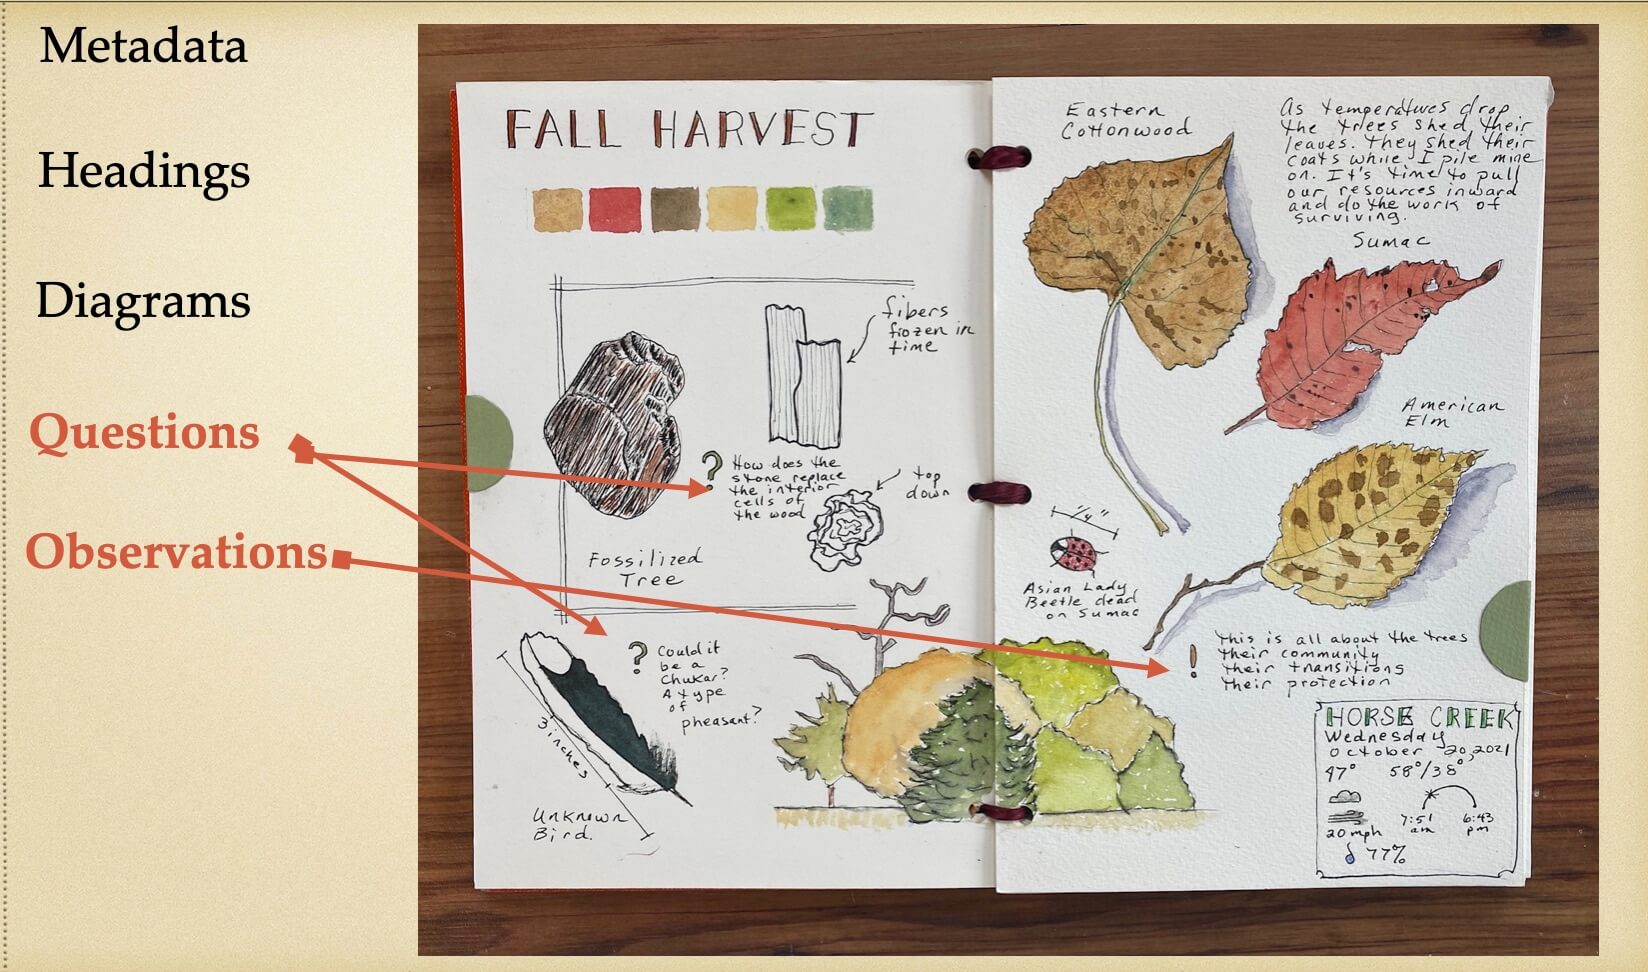 Metadata
Headings
Diagrams
Questions
Observations
FALL HARVEST
fibers
frozen in
time
?
How does the
stone replace
the interior
cells of
the wood
top
down
Fossilized
Tree
?
Could it
be a
Chukar?
A type
of
pheasant?
3 inches
Unknown
Bird.
Eastern
Cottonwood
As temperatures drop
the trees shed their
leaves. They shed their
coats while I pile mine
on. It's time to pull
our resources inward
and do the work of
surviving.
Sumac
American
Elm
1/4"
Asian Lady
Beetle dead
on Sumac
!
This is all about the trees
their community
their transitions
their protection
HORSE CREEK
Wednesday
October 20, 2021
47° 58°/38°
7:51 6:43
20 mph am pm
77%